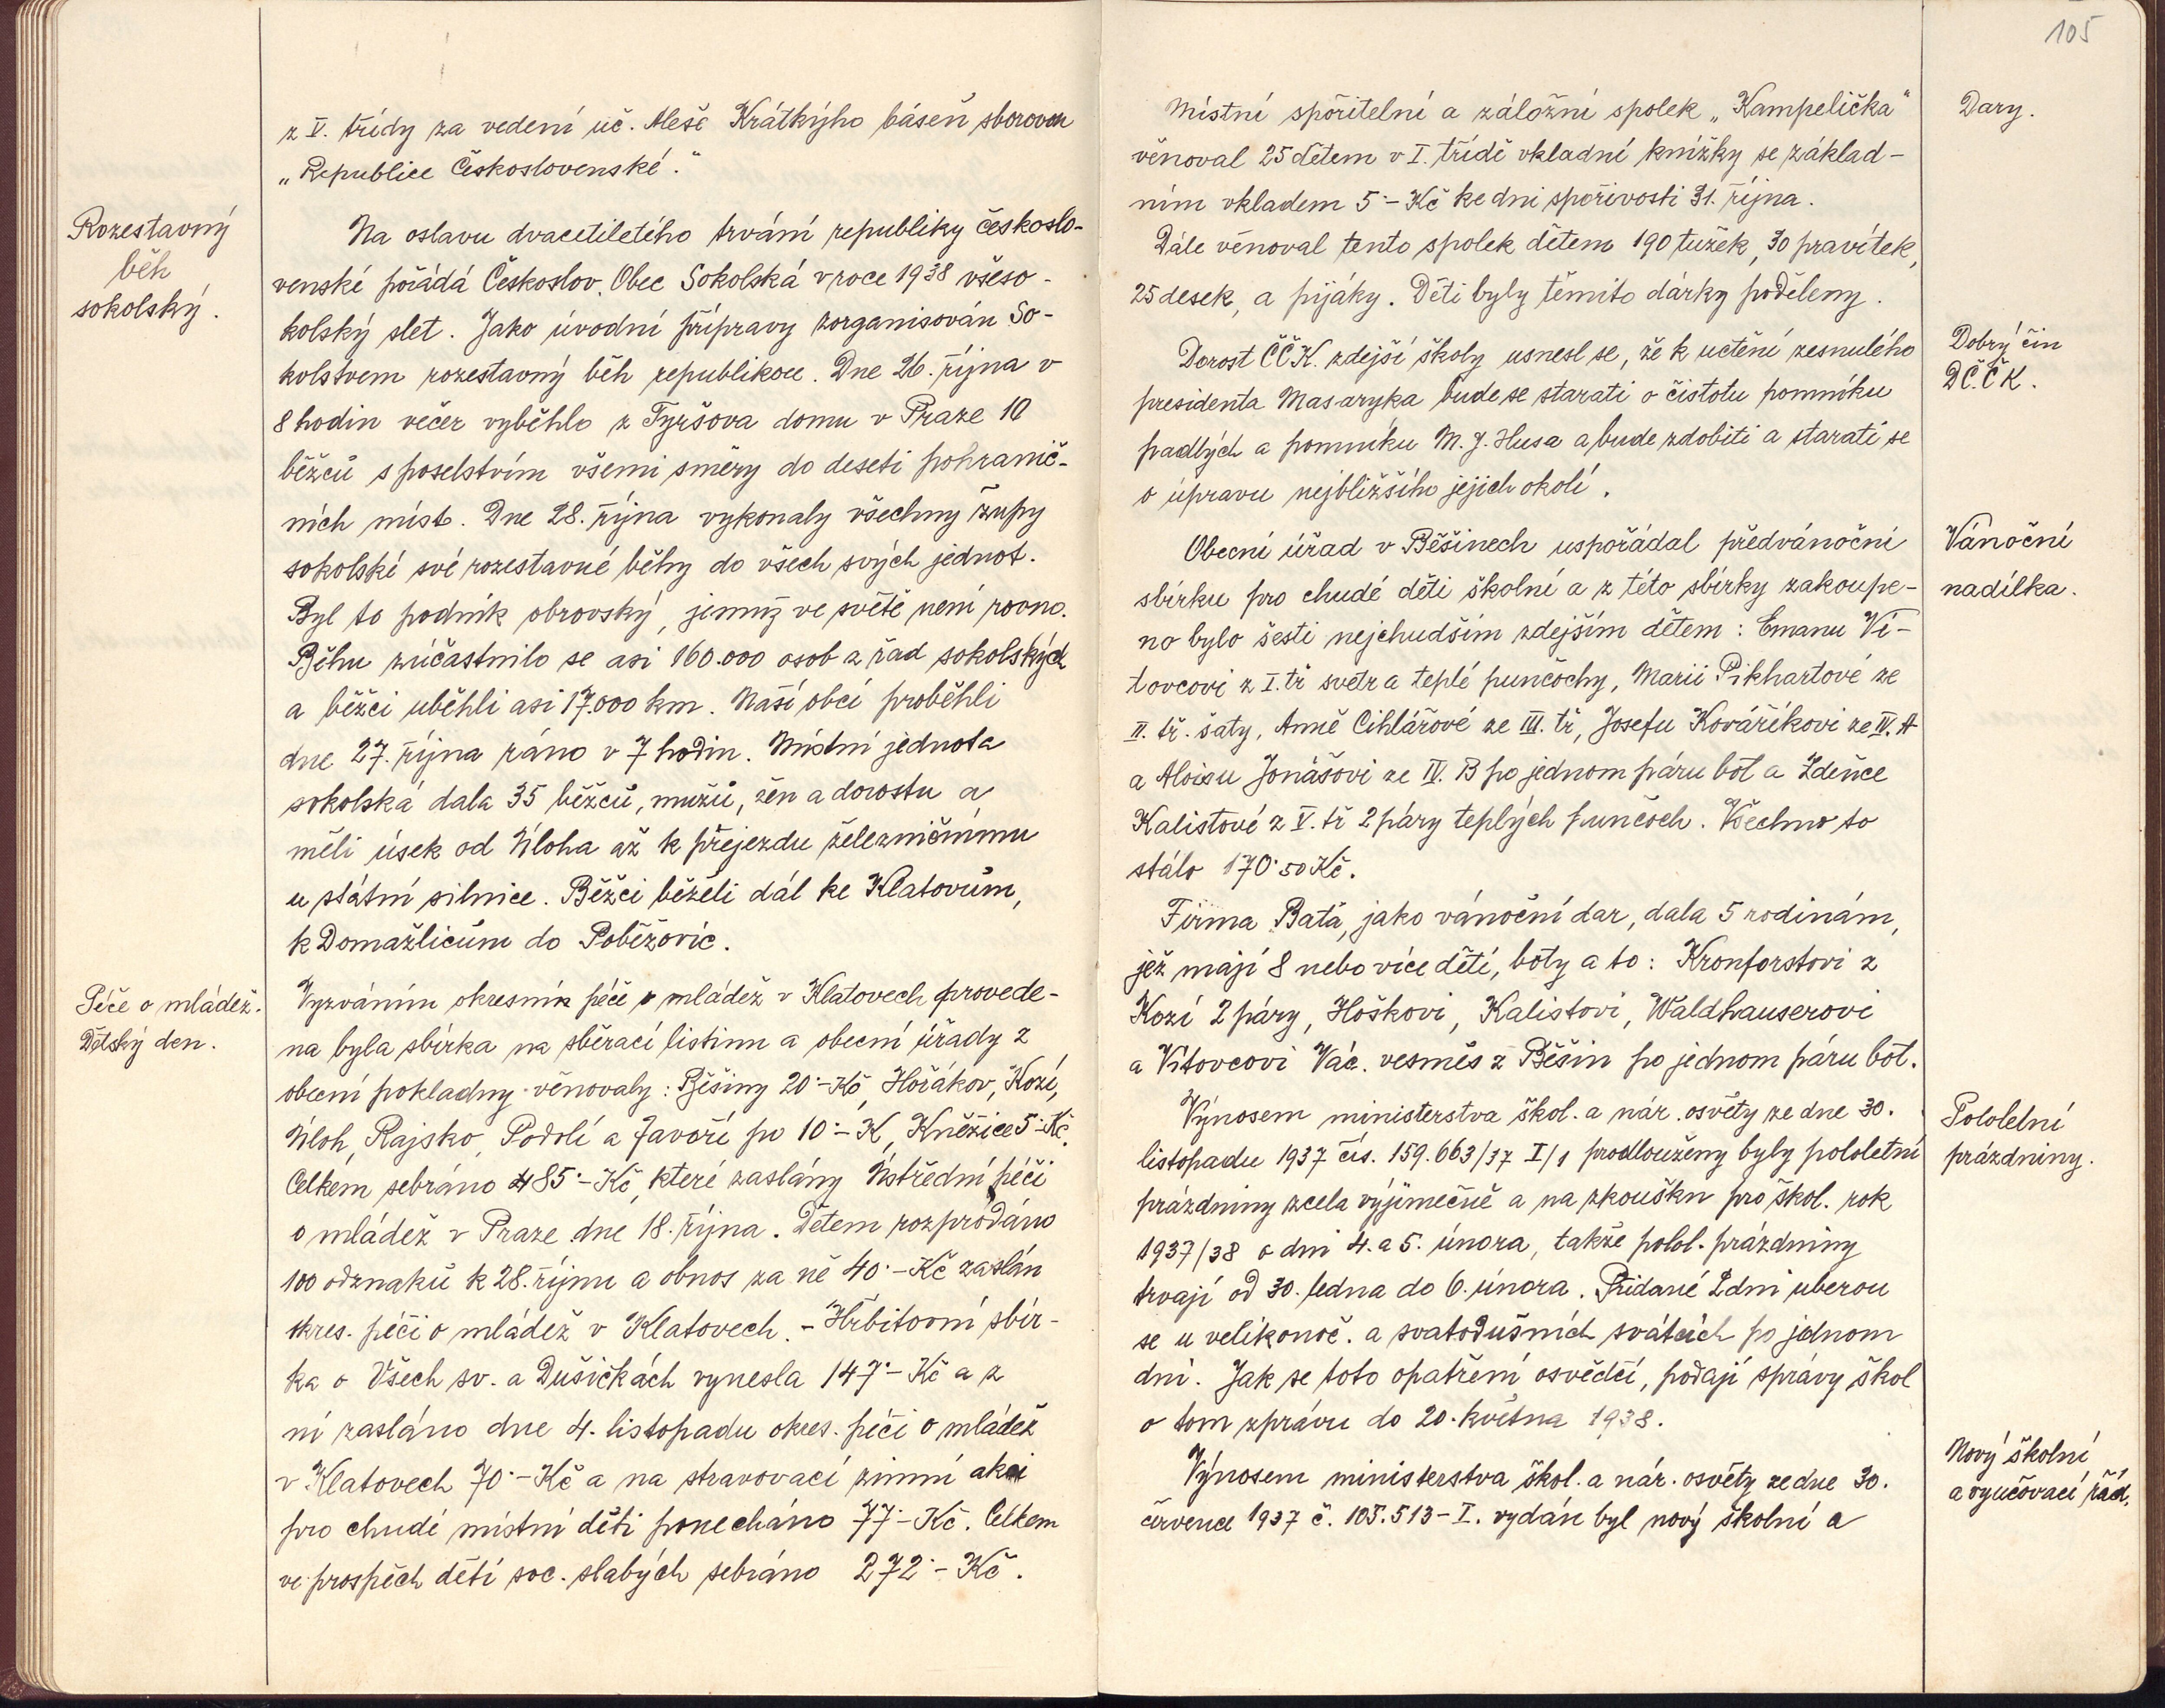 z V. třídy za vedení uč. Aleše Krátkýho báseň sborovou
„Republice Československé."
Rozestavný
běh
sokolský.
Na oslavu dvacetiletého trvání republiky českoslo-
venské pořádá Českoslov. Obec Sokolská v roce 1938 všeso-
kolský slet. Jako úvodní přípravy zorganisován So-
kolstvem rozestavný běh republikou. Dne 26. října v
8 hodin večer vyběhlo z Tyršova domu v Praze 10
běžců s poselstvím všemi směry do deseti pohranič-
ních míst. Dne 28. října vykonaly všechny župy
sokolské své rozestavné běhy do všech svých jednot.
Byl to podnik obrovský, jemuž ve světě není rovno.
Běhu zúčastnilo se asi 160.000 osob z řad sokolských
a běžci uběhli asi 17.000 km. Naší obcí proběhli
dne 27. října ráno v 7 hodin. Místní jednota
sokolská dala 35 běžců, mužů, žen a dorostu a
měli úsek od Úloha až k přejezdu železničnímu
u státní silnice. Běžci běželi dál ke Klatovům,
k Domažlicům do Poběžovic.
Péče o mládež.
Dětský den.
Vyzváním okresní péče o mládež v Klatovech provede-
na byla sbírka na sběrací listinu a obecní úřady z
obecní pokladny věnovaly: Běšiny 20·- Kč, Hořákov, Kozí,
Úloh, Rajsko, Podolí a Javoří po 10·- K, Kněžice 5·- Kč.
Celkem sebráno 85·- Kč, které zaslány Ústřední péči
o mládež v Praze dne 18. října. Dětem rozprodáno
100 odznaků k 28. říjnu a obnos za ně 40·- Kč zaslán
okres. péči o mládež v Klatovech. - Hřbitovní sbír-
ka o Všech sv. a Dušičkách vynesla 147·- Kč a z
ní zasláno dne 4. listopadu okres. péči o mládež
v Klatovech 70·- Kč a na stravovací zimní akci
pro chudé místní děti ponecháno 77·- Kč. Celkem
ve prospěch dětí soc. slabých sebráno 272·- Kč.
105
Dary.
Místní spořitelní a záložní spolek „Kampelička"
věnoval 25 dětem v I. třídě vkladní knížky se základ-
ním vkladem 5·- Kč ke dni spořivosti 31. října.
Dále věnoval tento spolek dětem 190 tužek, 30 pravítek,
25 desek, a pijáky. Děti byly těmito dárky poděleny.
Dobrý čin
DČ.ČK.
Dorost ČČK. zdejší školy usnesl se, že k uctění zesnulého
presidenta Masaryka bude se starati o čistotu pomníku
padlých a pomníku M. J. Husa a bude zdobiti a starati se
o úpravu nejbližšího jejich okolí.
Vánoční
nadílka.
Obecní úřad v Běšinech uspořádal předvánoční
sbírku pro chudé děti školní a z této sbírky zakoupe-
no bylo šesti nejchudším zdejším dětem: Emanu Ví-
tovcovi z I. tř svetr a teplé punčochy, Marii Pikhartové ze
II. tř. šaty, Anně Cihlářové ze III. tř, Josefu Kováříkovi ze IV. A
a Aloisu Jonášovi ze IV. B po jednom páru bot a Zdeňce
Kalistové z V. tř 2 páry teplých punčoch. Všechno to
stálo 170·50 Kč.
Firma Baťa, jako vánoční dar, dala 5 rodinám,
jež mají 8 nebo více dětí, boty a to: Kronforstovi z
Kozí 2 páry, Hoškovi, Kalistovi, Waldhauserovi
a Vítovcovi Vác. vesměs z Běšin po jednom páru bot.
Pololetní
prázdniny.
Výnosem ministerstva škol. a nár. osvěty ze dne 30.
listopadu 1937 čís. 159.663/37 I/1 prodlouženy byly pololetní
prázdniny zcela výjimečně a na zkoušku pro škol. rok
1937/38 o dni 4. a 5. února, takže polol. prázdniny
trvají od 30. ledna do 6. února. Přidané 2 dni uberou
se u velikonoč. a svatodušních svátcích po jednom
dni. Jak se toto opatření osvědčí, podají správy škol
o tom zprávu do 20. května 1938.
Nový školní
a vyučovací řád.
Výnosem ministerstva škol. a nár. osvěty ze dne 30.
července 1937 č. 105.513-I. vydán byl nový školní a